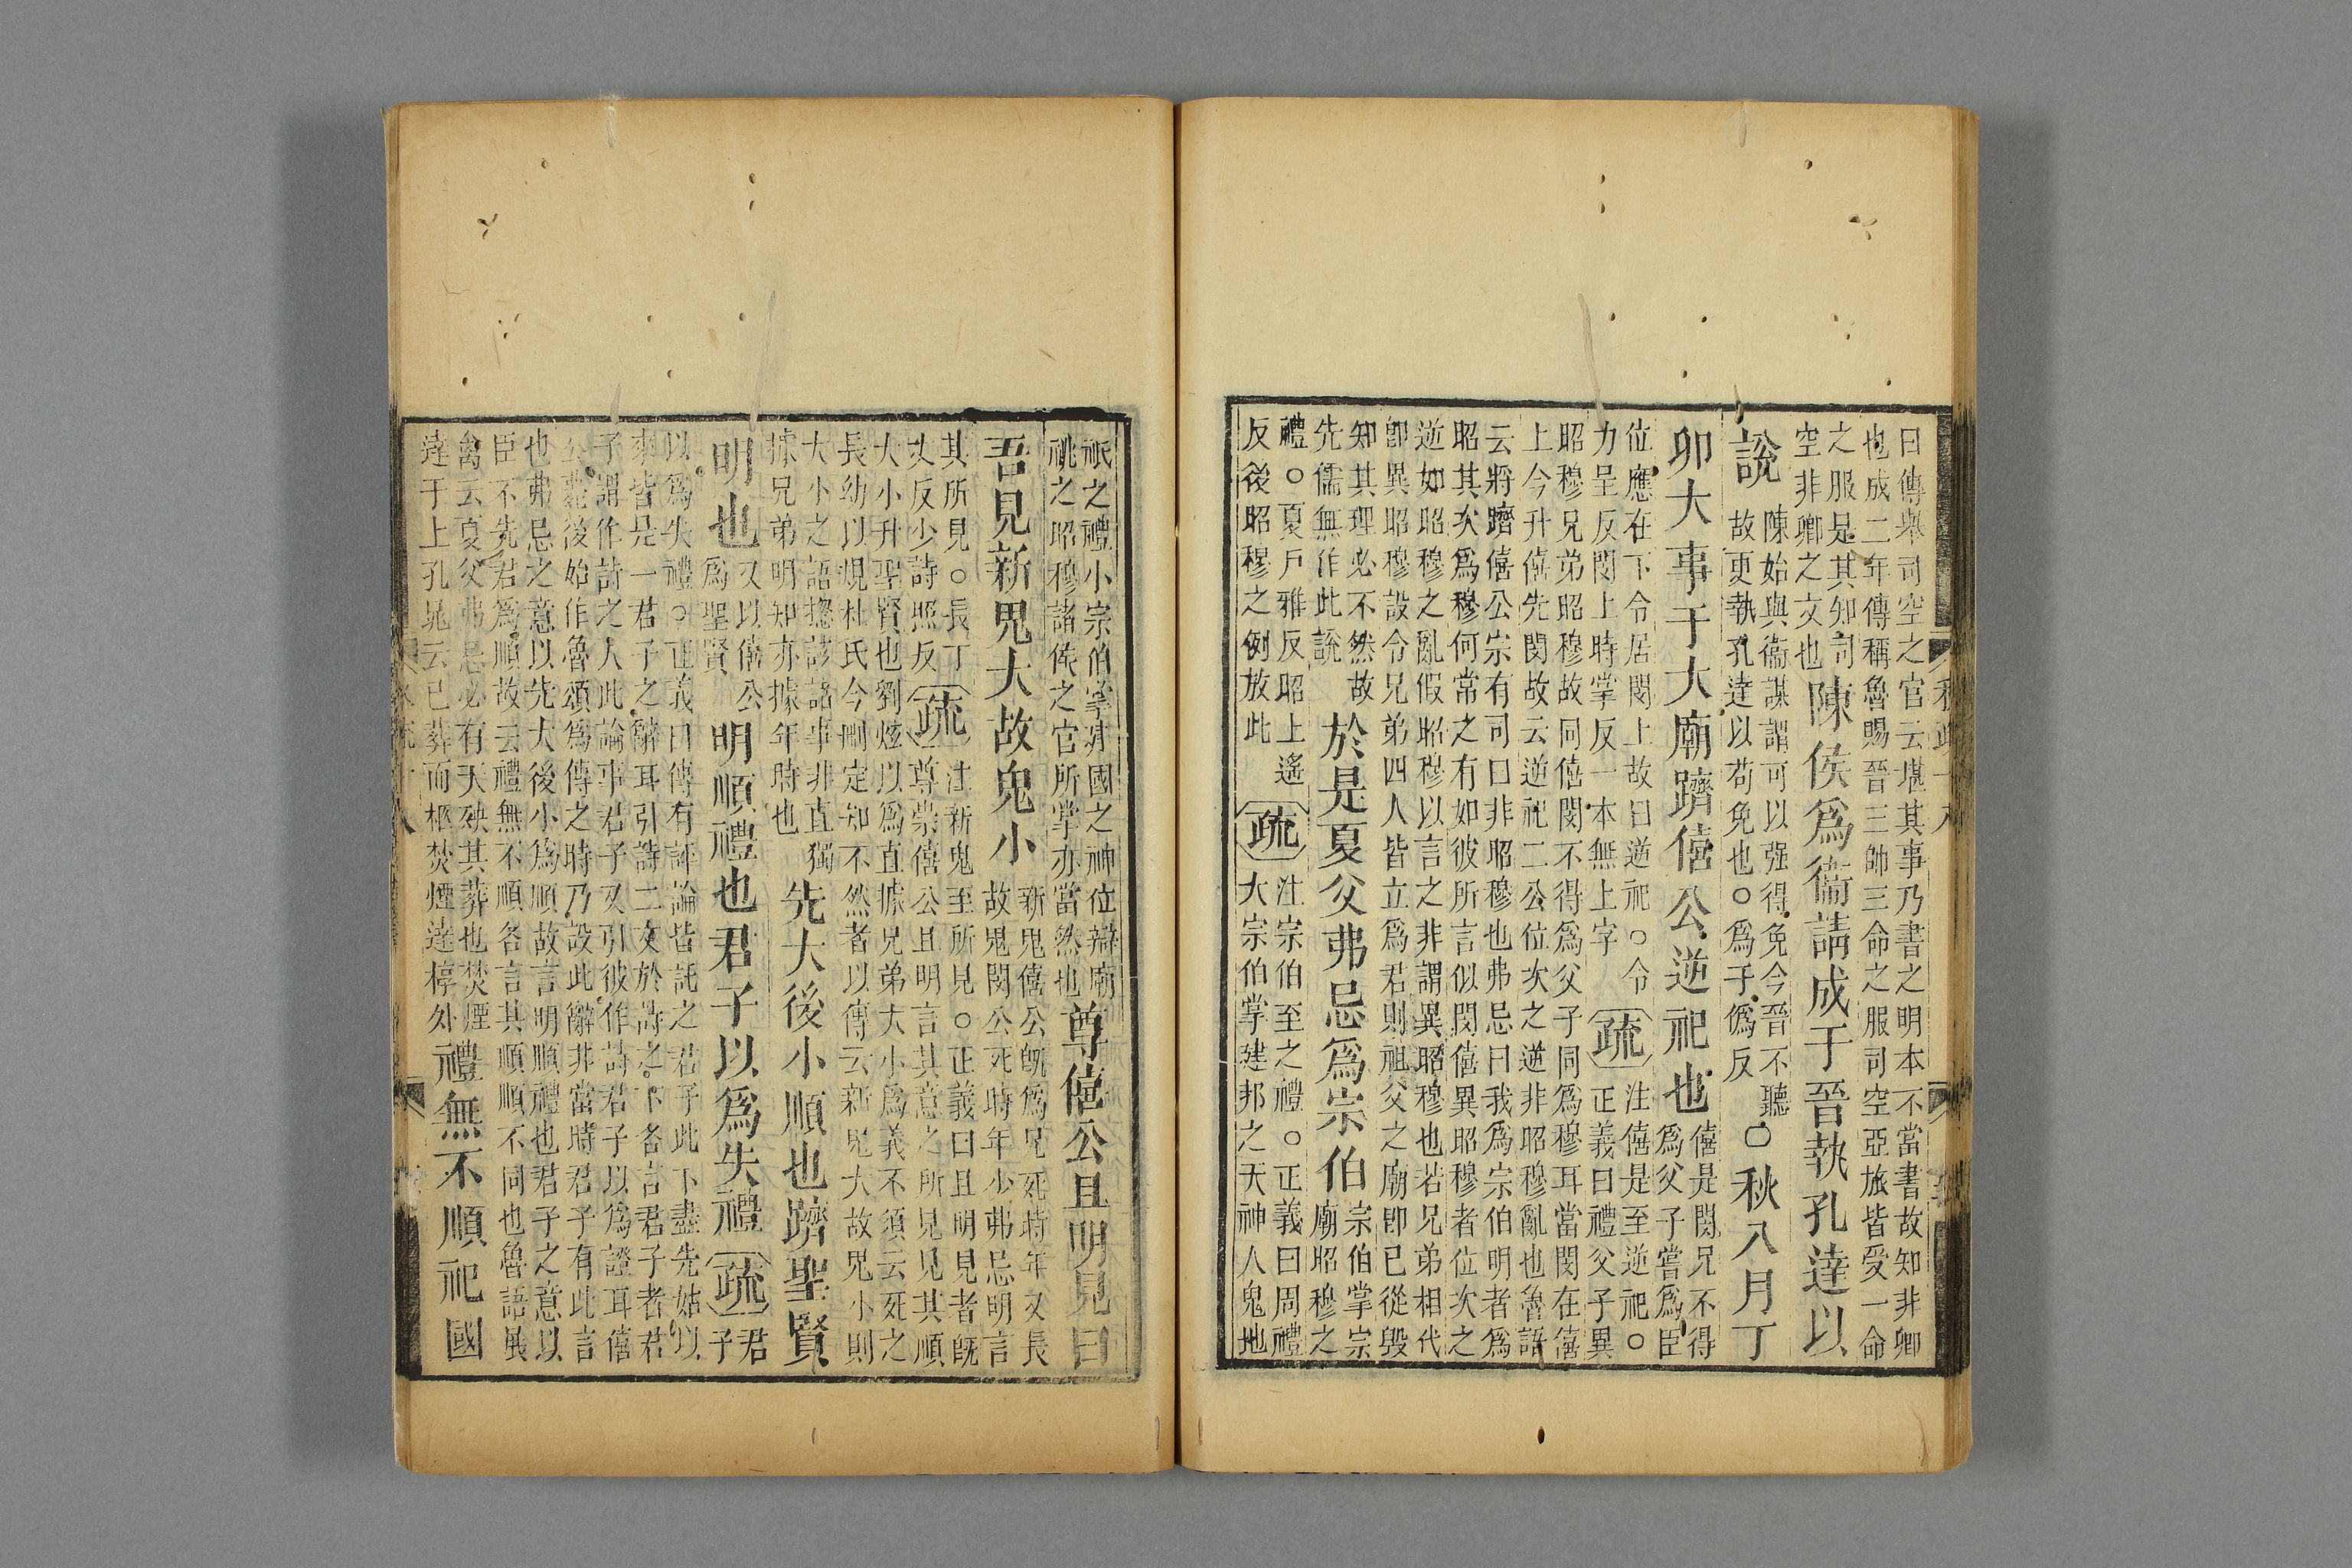 曰傳舉司空之官云堪其事乃書之明本不當書故知非卿
也成二年傳稱魯賜晉三帥三命之服司空亞旅皆受一命
之服是其知司
空非卿之文也
陳侯爲衞請成于晉執孔達以
說
陳始與衞謀謂可以强得免今晉不聽
故更執孔達以苟免也○爲于僞反
○秋八月丁
卯大事于大廟躋僖公逆祀也
僖是閔兄不得
爲父子嘗爲臣
位應在下令居閔上故曰逆祀○令
力呈反閔上時掌反一本無上字
疏
注僖是至逆祀○
正義曰禮父子異
昭穆兄弟昭穆故同僖閔不得爲父子同爲穆耳當閔在僖
上今升僖先閔故云逆祀二公位次之逆非昭穆亂也魯語
云將躋僖公宗有司曰非昭穆也弗忌曰我爲宗伯明者爲
昭其次爲穆何常之有如彼所言似閔僖異昭穆者位次之
逆如昭穆之亂假昭穆以言之非謂異昭穆也若兄弟相代
卽異昭穆設令兄弟四人皆立爲君則祖父之廟卽已從毀
知其理必不然故
先儒無作此說
於是夏父弗忌爲宗伯
宗伯掌宗
廟昭穆之
禮○夏戶雅反昭上遙
反後昭穆之例放此
疏
注宗伯至之禮○正義曰周禮
大宗伯掌建邦之天神人鬼地
祇之禮小宗伯掌建國之神位辯廟
祧之昭穆諸侯之官所掌亦當然也
尊僖公且明見曰
吾見新鬼大故鬼小
新鬼僖公旣爲兄死時年又長
故鬼閔公死時年少弗忌明言
其所見○長丁
丈反少詩照反
疏
注新鬼至所見○正義曰且明見者旣
尊崇僖公且明言其意之所見見其順
大小升聖賢也劉炫以爲直據兄弟大小爲義不須云死之
長幼以規杜氏今刪定知不然者以傳云新鬼大故鬼小則
大小之語摠該諸事非直獨
據兄弟明知亦據年時也
先大後小順也躋聖賢
明也
又以僖公
爲聖賢
明順禮也君子以爲失禮
疏
君
子
以爲失禮○正義曰傳有評論皆託之君子此下盡先姑以
來皆是一君子之辭耳引詩二文於詩之下各言君子者君
子謂作詩之人此論事君子又引彼作詩君子以爲證耳僖
公薨後始作魯頌爲傳之時乃設此辭非當時君子有此言
也弗忌之意以先大後小爲順故言明順禮也君子之意以
臣不先君爲順故云禮無不順各言其順順不同也魯語展
禽云夏父弗忌必有夭殃其葬也焚煙
達于上孔晁云已葬而柩焚煙達椁外
禮無不順祀國